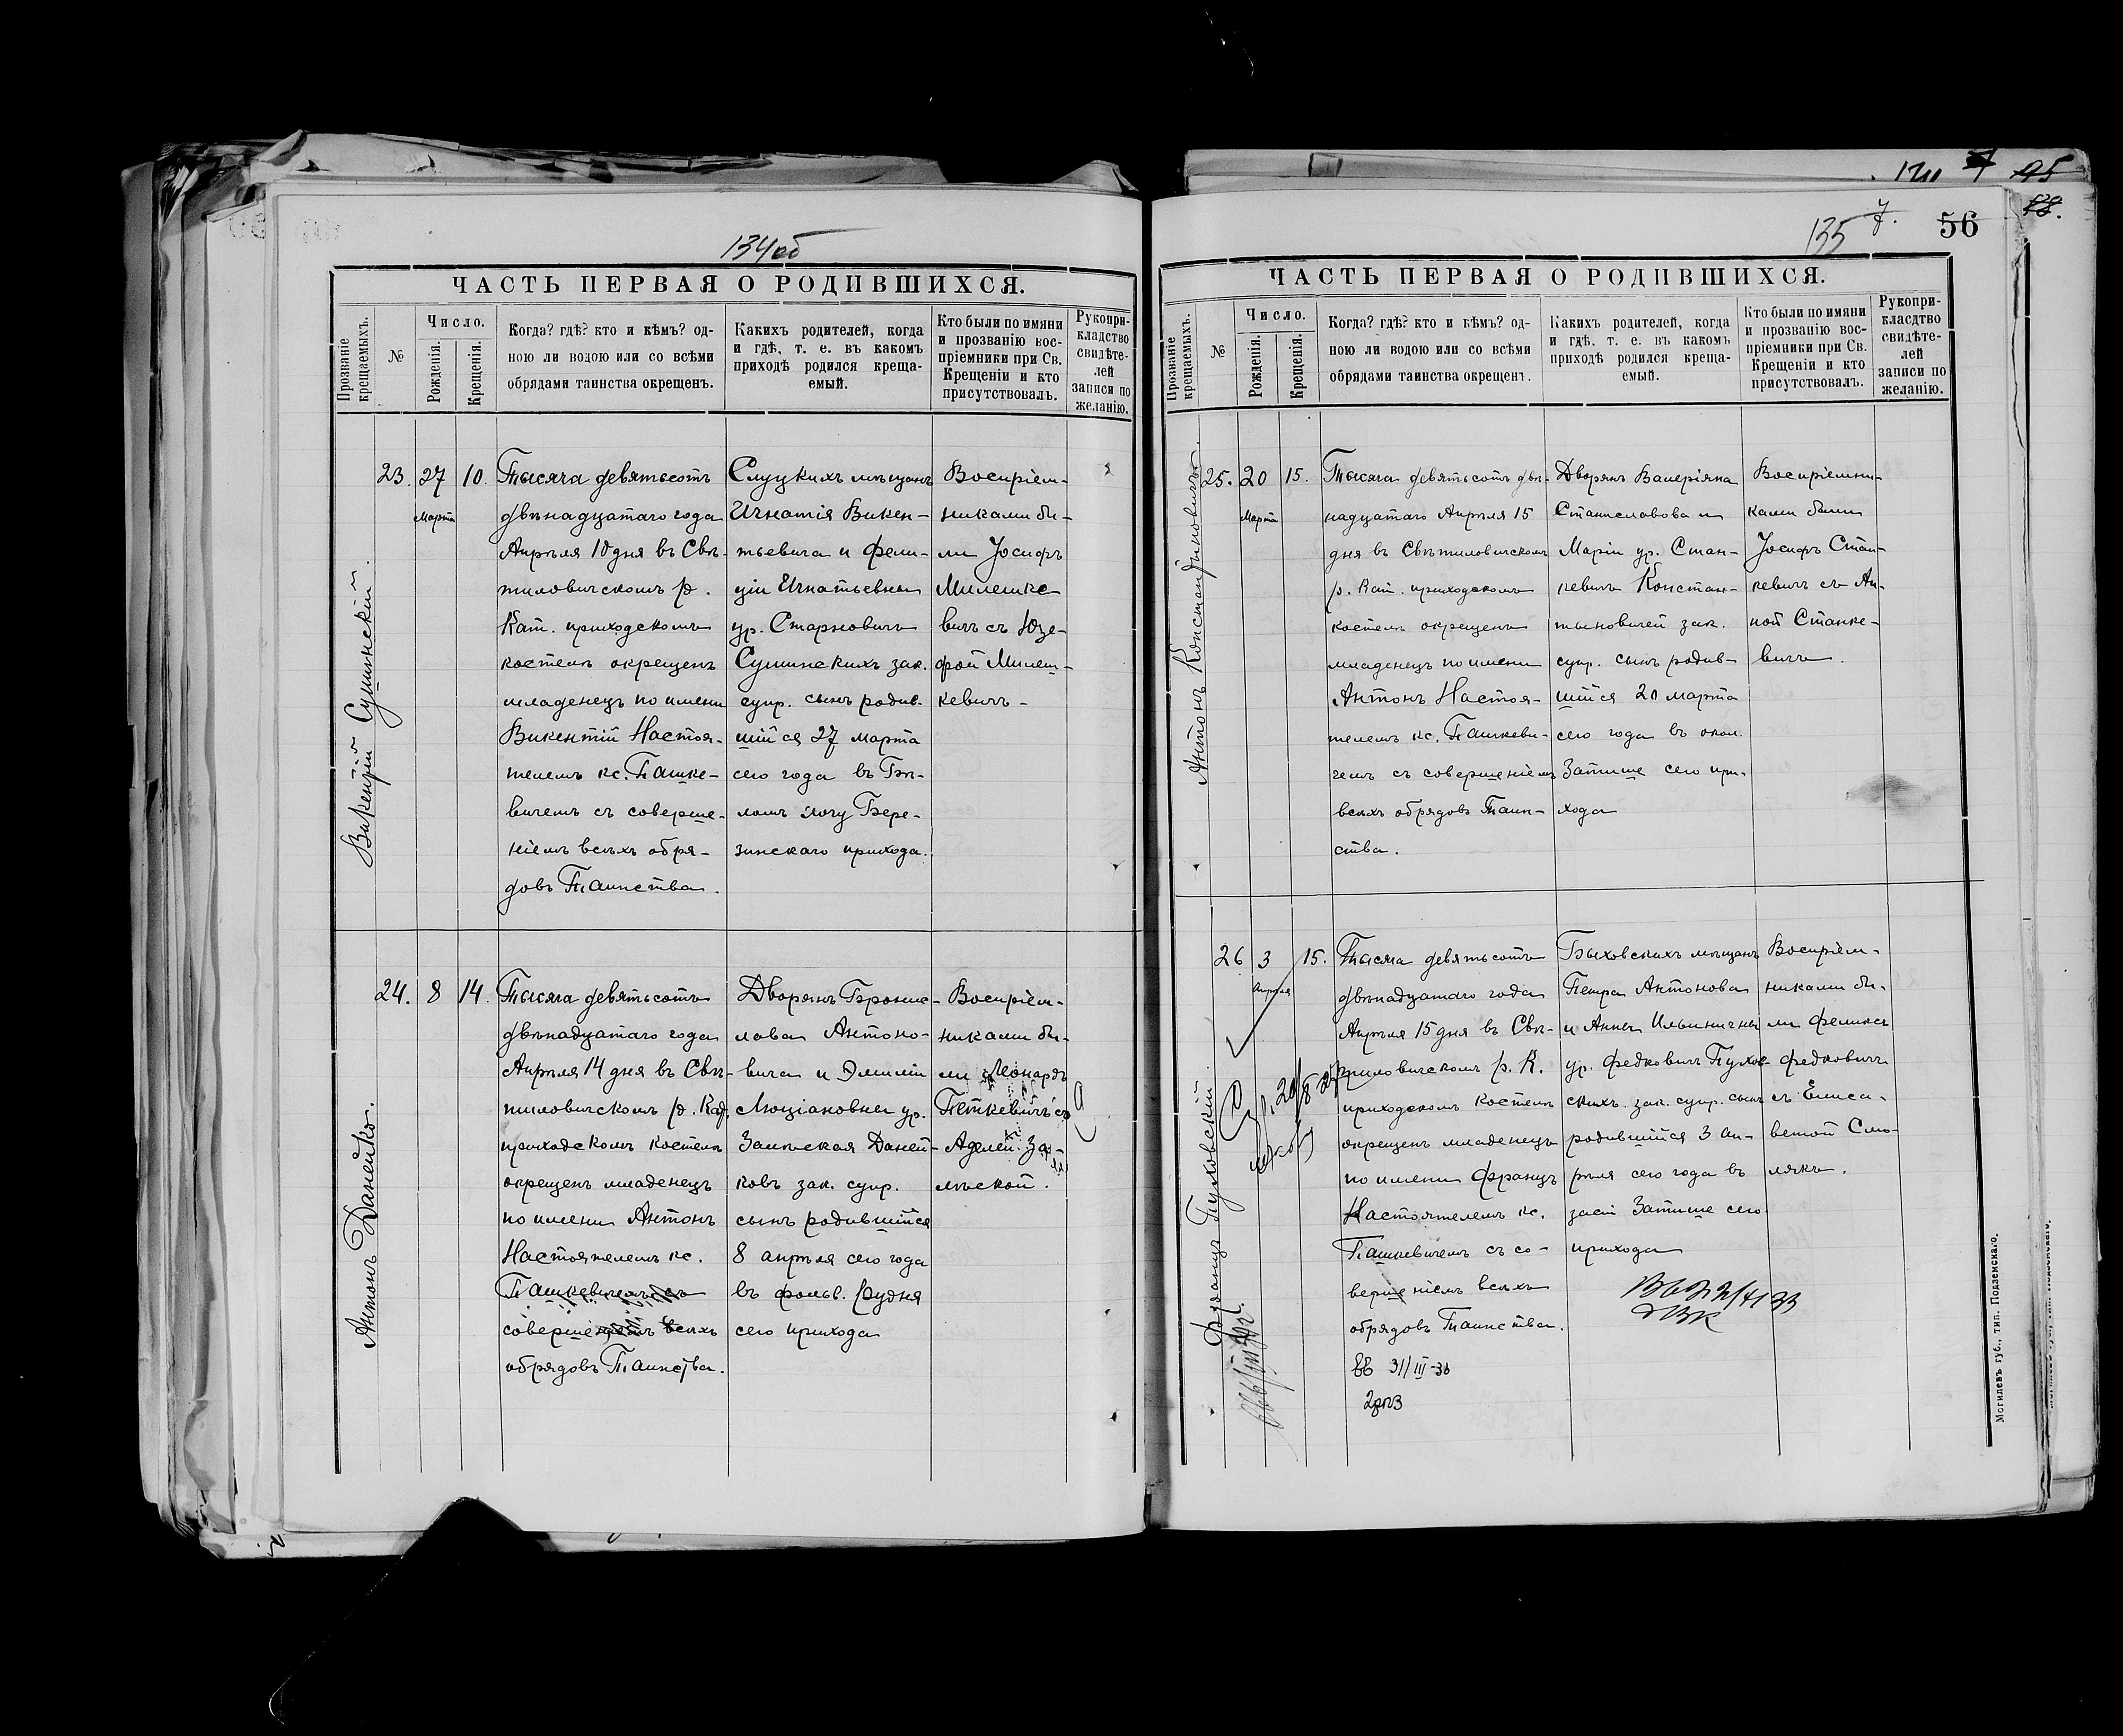 134об
ЧАСТЬ ПЕРВАЯ О РОДИВШИХСЯ.
Прозваніе крещаемыхъ.
№
Число.
Рожденія.
Крещенія.
Когда? гдѣ? кто и кѣмъ? од-
ною ли водою или со всѣми
обрядами таинства окрещенъ.
Какихъ родителей, когда
и гдѣ, т. е. въ какомъ
приходѣ родился креща-
емый.
Кто были по имяни
и прозванію вос-
пріемники при Св.
Крещеніи и кто
присутствовалъ.
Рукопри-
кладство
свидѣте-
лей
записи по
желанію.
Викентій Сушинскій.
23.
27
Марта
10.
Тысяча девятьсотъ
двѣнадцатаго года
Апрѣля 10 дня въ Свѣ-
тиловичскомъ р.
Кат. приходскомъ
костелѣ окрещенъ
младенецъ по имени
Викентій Настоя-
телемъ кс. Пашке-
вичемъ съ соверше-
ніемъ всѣхъ обря-
довъ Таинства.
Слуцкихъ мѣщанъ
Игнатія Викен-
тьевича и Фели-
ціи Игнатьевны
ур. Старновичъ
Сушинскихъ зак.
супр. сынъ родив-
шійся 27 марта
сего года въ Бѣ-
ломъ Логу Бере-
зинскаго прихода.
Воспріем-
никами бы-
ли Іосифъ
Милешке-
вичъ съ Юзе-
фой Милеш-
кевичъ -
24.
8
14.
Антонъ Данейко.
Тысяча девятьсотъ
двѣнадцатаго года
Апрѣля 14 дня въ Свѣ-
тиловичскомъ р. Кат.
приходскомъ костелѣ
окрещенъ младенецъ
по имени Антонъ
Настоятелемъ кс.
Пашкевичемъ съ
совершеніемъ всѣхъ
обрядовъ Таинства.
Дворянъ Бронис-
лава Антоно-
вича и Эмиліи
Люціановны ур.
Залѣская Даней-
ковъ зак. супр.
сынъ родившійся
8 апрѣля сего года
въ фольв. Рудня
сего прихода
Воспріем-
никами бы-
ли Леонардъ
Петкевичъ съ
Аделей За-
лѣской.
135
56
ЧАСТЬ ПЕРВАЯ О РОДИВШИХСЯ.
Прозваніе крещаемыхъ.
№
Число.
Рожденія.
Крещенія.
Когда? гдѣ? кто и кѣмъ? од-
ною ли водою или со всѣми
обрядами таинства окрещенъ.
Какихъ родителей, когда
и гдѣ, т. е. въ какомъ
приходѣ родился креща-
емый.
Кто были по имяни
и прозванію вос-
пріемники при Св.
Крещеніи и кто
присутствовалъ.
Рукопри-
класдтво
свидѣте-
лей
записи по
желанію.
Антонъ Константиновичъ.
25.
20
Марта
15.
Тысяча девятьсотъ двѣ-
надцатаго Апрѣля 15
дня въ Свѣтиловичскомъ
р. Кат. приходскомъ
костелѣ окрещенъ
младенецъ по имени
Антонъ Настоя-
телемъ кс. Пашкеви-
чемъ съ совершеніемъ
всѣхъ обрядовъ Таин-
ства.
Дворянъ Валеріяна
Станиславова и
Маріи ур. Стан-
кевичъ Констан-
тыновичей зак.
супр. сынъ родив-
шійся 20 марта
сего года въ окол.
Затише сего при-
хода
Воспріемни-
ками были
Іосифъ Стан-
кевичъ съ Ан-
ной Станке-
вичъ.
Францъ Пуховскій.
26
3
Апрѣля
15.
Тысяча девятьсотъ
двѣнадцатаго года
Апрѣля 15 дня въ Свѣ-
тиловичскомъ р. К.
приходскомъ костелѣ
окрещенъ младенецъ
по имени Францъ
Настоятелемъ кс.
Пашкевичемъ съ со-
вершеніемъ всѣхъ
обрядовъ Таинства.
вв 31/III-36
Быховскихъ мѣщанъ
Петра Антонова
и Анны Ильиничны
ур. Федковичъ Пухов-
скихъ зак. супр. сынъ
родившійся 3 ап-
рѣля сего года въ
засі Затише сего
прихода
Воспріем-
никами бы-
ли Феликсъ
Федковичъ
съ Елиса-
ветой Смо-
лякъ.
Могилевъ губ., тип. Подземскаго.